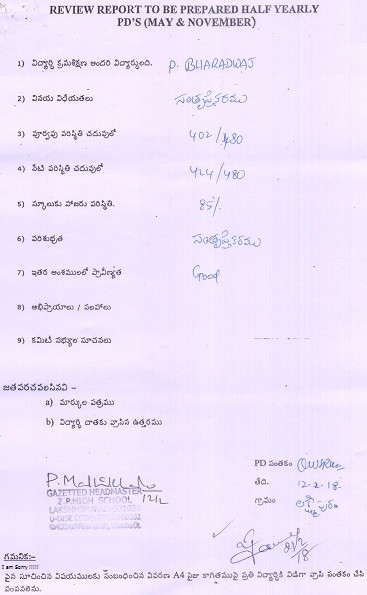 REVIEW REPORT TO BE PREPARED HALF YEARLY
PD'S (MAY & NOVEMBER)
1) విద్యార్థి క్రమశిక్షణ అందరి విద్యార్థులది. P. BHARADWAJ
2) వినయ విధేయతలు సంతృప్తికరము
3) పూర్వపు పరిస్థితి చదువులో 402/480
4) నేటి పరిస్థితి చదువులో 424/480
5) స్కూలుకు హాజరు పరిస్థితి. 85%
6) పరిశుభ్రత సంతృప్తికరము
7) ఇతర అంశములలో ప్రావీణ్యత Good
8) అభిప్రాయాలు / సలహాలు
9) కమిటీ సభ్యుల సూచనలు
జతపరచవలసినవి –
a) మార్కుల పత్రము
b) విద్యార్థి దాతకు వ్రాసిన ఉత్తరము
PD సంతకం
తేది. 12-2-18
గ్రామం లక్ష్మీపురం
GAZETTED HEADMASTER
Z.P.HIGH SCHOOL
గమనిక:–
I am Sorry !!!!!
పైన సూచించిన విషయములకు సంబంధించిన వివరణ A4 సైజు కాగితముపై ప్రతి విద్యార్థికి విడిగా వ్రాసి సంతకం చేసి
పంపవలెను.